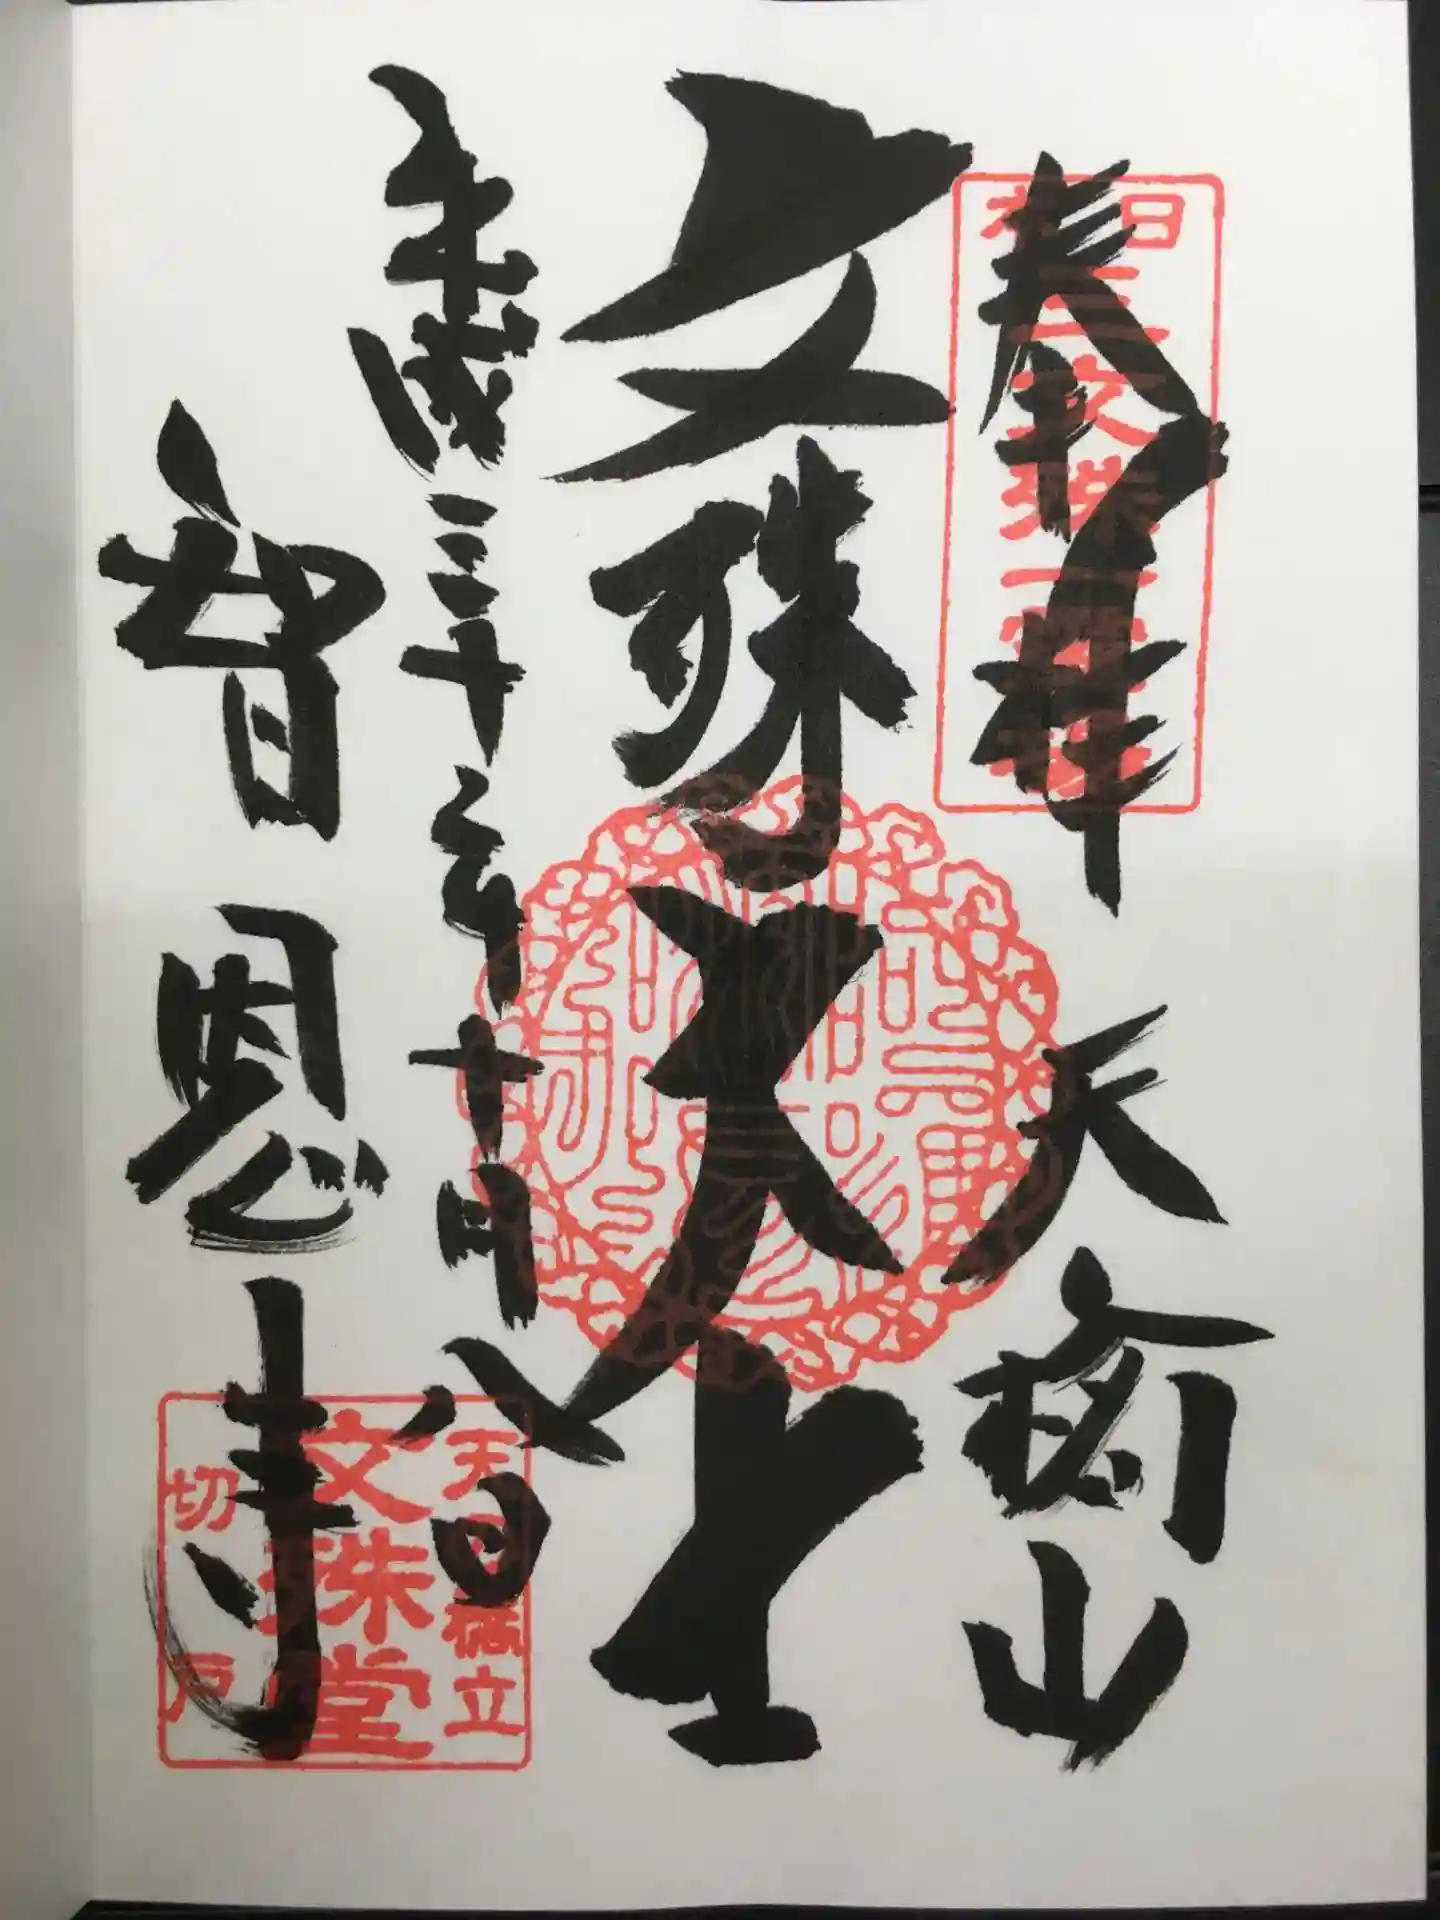 奉拝
天橋山
日本
三文殊一
文殊大士
平成三十年十月八日
智恩寺
天橋立
文殊堂
切戸